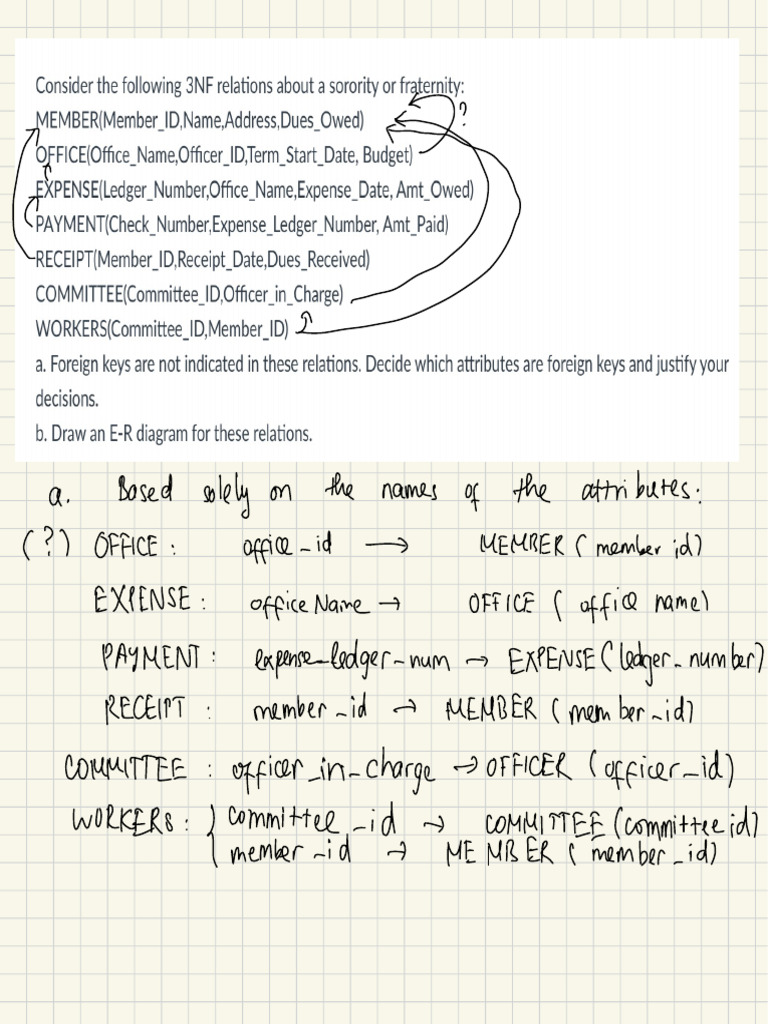 Consider the following 3NF relations about a sorority or fraternity:
MEMBER(Member_ID,Name,Address,Dues_Owed)
?
OFFICE(Office_Name,Officer_ID,Term_Start_Date, Budget)
EXPENSE(Ledger_Number,Office_Name,Expense_Date, Amt_Owed)
PAYMENT(Check_Number,Expense_Ledger_Number, Amt_Paid)
RECEIPT(Member_ID,Receipt_Date,Dues_Received)
COMMITTEE(Committee_ID,Officer_in_Charge)
WORKERS(Committee_ID,Member_ID)
a. Foreign keys are not indicated in these relations. Decide which attributes are foreign keys and justify your
decisions.
b. Draw an E-R diagram for these relations.
a. Based solely on the names of the attributes:
(?) OFFICE: office_id → MEMBER (member id)
EXPENSE: office Name → OFFICE ( office name)
PAYMENT: expense_ledger_num → EXPENSE (ledger_number)
RECEIPT: member_id → MEMBER (member_id)
COMMITTEE: officer_in_charge → OFFICER (officer_id)
WORKERS: { committee_id → COMMITTEE (committee id)
member_id → MEMBER (member_id)